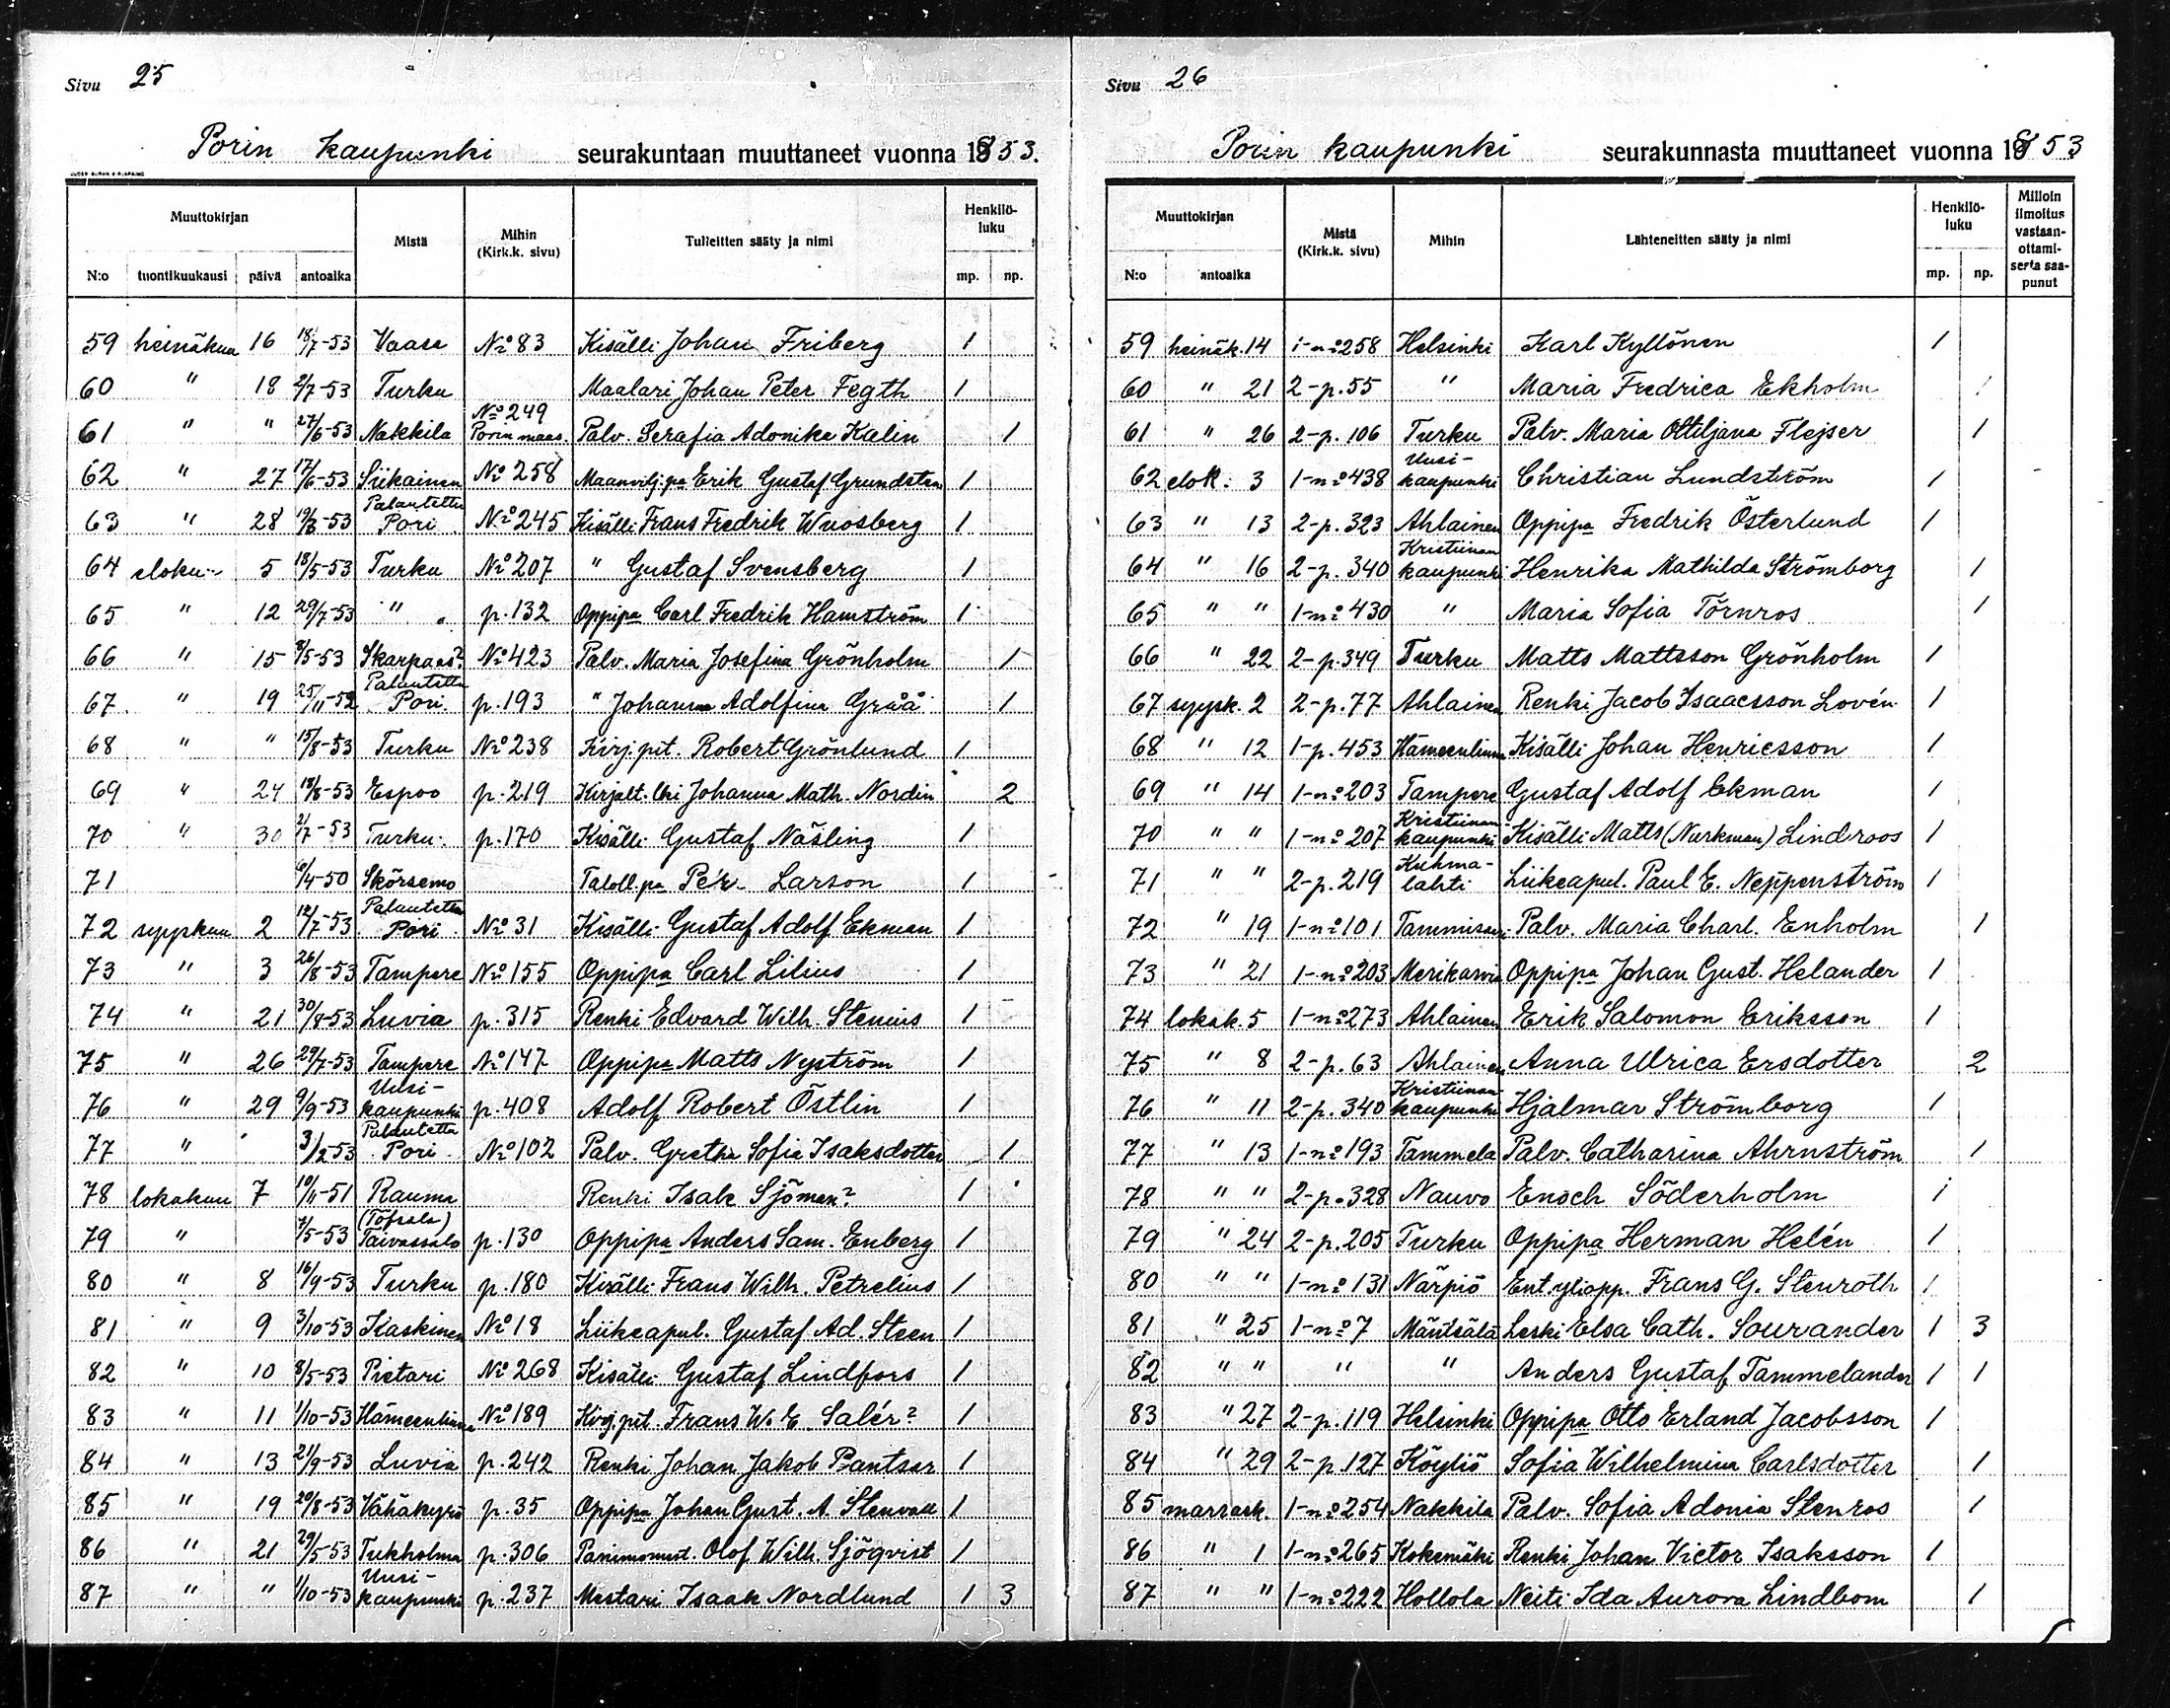 Sivu 25
Porin kaupunki seurakuntaan muuttaneet vuonna 1853.
Muuttokirjan Mistä Mihin (Kirk.k. sivu) Tulleitten sääty ja nimi Henkilö-luku
N:o tuontikuukausi päivä antoaika mp. np.
59 heinäkuu 16 18/7-53 Vaasa No 83 Kisälli Johan Friberg 1
60 " 18 2/7-53 Turku Maalari Johan Peter Fegth 1
61 " " 27/6-53 Nakkila No 249 Porin maas. Palv. Serafia Adonika Kalin 1
62 " 27 17/6-53 Siikainen No 258 Maanvilj.pa Erik Gustaf Grundsten 1
63 " 28 19/3-53 Palautettu Pori No 245 Kisälli Frans Fredrik Wuosberg 1
64 eloku 5 18/5-53 Turku No 207 " Gustaf Svensberg 1
65 " 12 29/7-53 " p. 132 Oppipa Carl Fredrik Hamström 1
66 " 15 8/5-53 Skarpaas? No 423 Palv. Maria Josefina Grönholm 1
67. " 19 25/11-52 Palautettu Pori p. 193 " Johanna Adolfina Gråå 1
68 " " 15/8-53 Turku No 238 Kirj.pit. Robert Grönlund 1
69 " 24 18/8-53 Espoo p. 219 Kirjalt. lki Johanna Math. Nordin 2
70 " 30 2/7-53 Turku p. 170 Kisälli Gustaf Näsling 1
71 6/4-50 Skörsemo Taloll.pa Pe'r Larson 1
72 syyskuu 2 12/7-53 Palautettu Pori No 31 Kisälli Gustaf Adolf Ekman 1
73 " 3 26/8-53 Tampere No 155 Oppipa Carl Lilius 1
74 " 21 30/8-53 Luvia p. 315 Renki Edvard Wilh. Stenius 1
75 " 26 29/7-53 Tampere No 147 Oppipa Matts Nyström 1
76 " 29 9/9-53 Uusi-kaupunki p. 408 Adolf Robert Östlin 1
77 " 3/2-53 Palautettu Pori No 102 Palv. Gretha Sofia Isaksdotter 1
78 lokakuu 7 10/11-51 Rauma Renki Isak Sjöman? 1
79 " 7/5-53 (Töfsala) Taivassalo p. 130 Oppipa Anders Sam. Enberg 1
80 " 8 16/9-53 Turku p. 180 Kisälli Frans Wilh. Petrelius 1
81 " 9 3/10-53 Kaskinen No 18 Liikeapul. Gustaf Ad. Steen 1
82 " 10 8/5-53 Pietari No 268 Kisälli Gustaf Lindfors 1
83 " 11 1/10-53 Hämeenlinna No 189 Kirj.pit. Frans W. E. Salér? 1
84 " 13 21/9-53 Luvia p. 242 Renki Johan Jakob Pantsar 1
85 " 19 20/8-53 Vähäkyrö p. 35 Oppipa Johan Gust. A. Stenvall 1
86 " 21 29/5-53 Tukholma p. 306 Panimomest. Olof Wilh. Sjöqvist 1
87 " " 1/10-53 Uusi-kaupunki p. 237 Mestari Isaak Nordlund 1 3
Sivu 26
Porin kaupunki seurakunnasta muuttaneet vuonna 1853
Muuttokirjan Mistä (Kirk.k. sivu) Mihin Lähteneitten sääty ja nimi Henkilö-luku Milloin ilmoitus vastaan-ottami-sesta saa-punut
N:o antoaika mp. np.
59 heinäk. 14 1-no 258 Helsinki Karl Kyllönen 1
60 " 21 2-p. 55 " Maria Fredrica Ekholm 1
61 " 26 2-p. 106 Turku Palv. Maria Ottiljana Flejser 1
62 elok. 3 1-no 438 Uusi-kaupunki Christian Lundström 1
63 " 13 2-p. 323 Ahlainen Oppipa Fredrik Österlund 1
64 " 16 2-p. 340 Kristiinankaupunki Henrika Mathilda Strömborg 1
65 " " 1-no 430 " Maria Sofia Törnros 1
66 " 22 2-p. 349 Turku Matts Mattsson Grönholm 1
67 syysk. 2 2-p. 77 Ahlainen Renki Jacob Isaacsson Lovén 1
68 " 12 1-p. 453 Hämeenlinna Kisälli Johan Henricsson 1
69 " 14 1-no 203 Tampere Gustaf Adolf Ekman 1
70 " " 1-no 207 Kristiinankaupunki Kisälli Matts (Nurkman) Lindroos 1
71 " " 2-p. 219 Kuhma-lahti Liikeapul. Paul E. Neppenström 1
72 " 19 1-no 101 Tammisaari Palv. Maria Charl. Enholm 1
73 " 21 1-no 203 Merikarvia Oppipa Johan Gust. Helander 1
74 lokak. 5 1-no 273 Ahlainen Erik Salomon Eriksson 1
75 " 8 2-p. 63 Ahlainen Anna Ulrica Ersdotter 2
76 " 11 2-p. 340 Kristiinan-kaupunki Hjalmar Strömborg 1
77 " 13 1-no 193 Tammela Palv. Catharina Ahrnström 1
78 " " 2-p. 328 Nauvo Enoch Söderholm 1
79 " 24 2-p. 205 Turku Oppipa Herman Helén 1
80 " " 1-no 131 Närpiö Ent. yliopp. Frans G. Stenroth 1
81 " 25 1-no 7 Mäntsälä Leski Elsa Cath. Sourander 1 3
82 " " " " Anders Gustaf Tammelander 1 1
83 " 27 2-p. 119 Helsinki Oppipa Otto Erland Jacobsson 1
84 " 29 2-p. 127 Köyliö Sofia Wilhelmina Carlsdotter 1
85 marrask. 1-no 254 Nakkila Palv. Sofia Adonia Stenros 1
86 " 1 1-no 265 Kokemäki Renki Johan Victor Isaksson 1
87 " " 1-no 222 Hollola Neiti Ida Aurora Lindbom 1